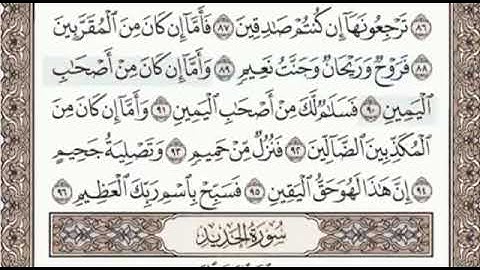 ٨٦ تَرْجِعُونَهَا إِن كُنتُمْ صَادِقِينَ ٨٧ فَأَمَّا إِن كَانَ مِنَ الْمُقَرَّبِينَ
٨٨ فَرَوْحٌ وَرَيْحَانٌ وَجَنَّتُ نَعِيمٍ ٨٩ وَأَمَّا إِن كَانَ مِنْ أَصْحَابِ
الْيَمِينِ ٩٠ فَسَلَامٌ لَّكَ مِنْ أَصْحَابِ الْيَمِينِ ٩١ وَأَمَّا إِن كَانَ مِنَ
الْمُكَذِّبِينَ الضَّالِّينَ ٩٢ فَنُزُلٌ مِّنْ حَمِيمٍ ٩٣ وَتَصْلِيَةُ جَحِيمٍ
٩٤ إِنَّ هَذَا لَهُوَ حَقُّ الْيَقِينِ ٩٥ فَسَبِّحْ بِاسْمِ رَبِّكَ الْعَظِيمِ ٩٦
سُورَةُ الْحَدِيدِ